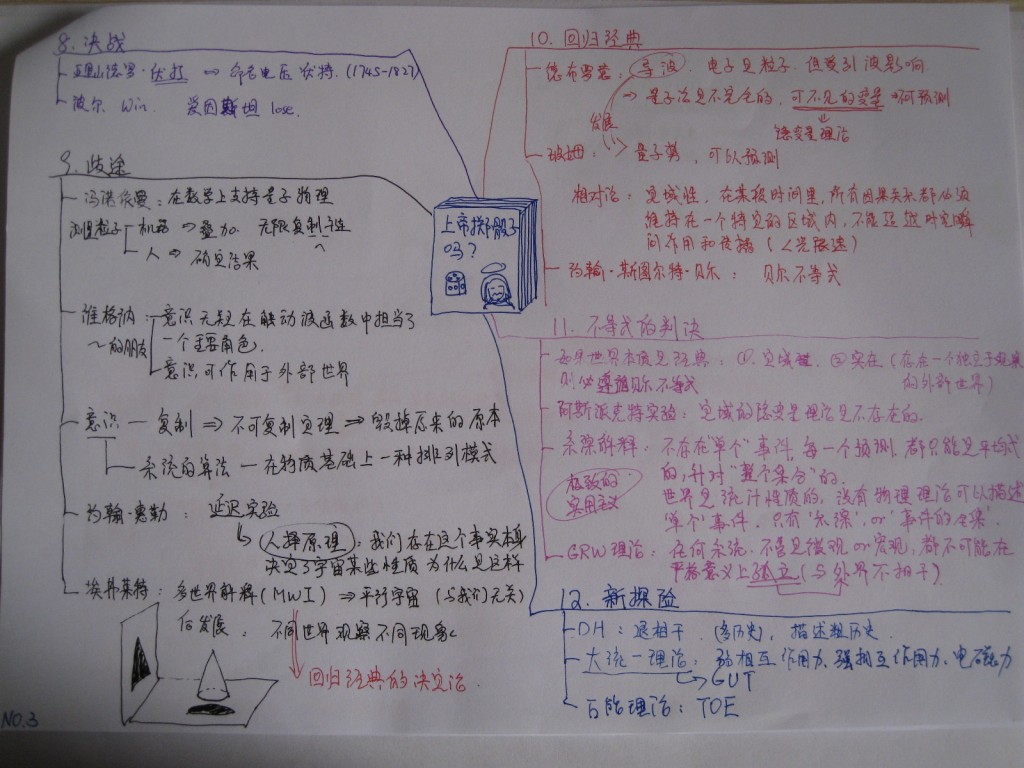 8. 决战
亚里山德罗·伏打 ⇔ 命名电压 伏特. (1745-1827)
波尔 Win. 爱因斯坦 lose.
9. 歧途
冯诺依曼：在数学上支持量子物理
测量粒子 机器 → 叠加. 无限复制性
人 ⇒ 确定结果
维格纳：意识无疑在触动波函数中担当了
～的朋友 一个重要角色.
意识可作用于外部世界
意识 — 复制 ⇒ 不可复制原理 ⇒ 毁掉原来的原本
系统的算法 — 在物质基础上一种排列模式
约翰·惠勒： 延迟实验
人择原理：我们存在这个事实本身
决定了宇宙某些性质为什么是这样
埃弗莱特：多世界解释(MWI) ⇒ 平行宇宙 (与我们无关)
何发展： 不同世界观察不同现象
回归经典的决定论.
NO.3
上帝掷骰子
吗？
10. 回归经典
德布罗意：导波. 电子是粒子. 但受到波影响
→ 量子论是不完备的. 可不见的变量 →可预测
发展 隐变量理论
玻姆： 量子势, 可以预测
相对论： 定域性, 在某段时间里, 所有因果关系都必须
维持在一个特定的区域内, 不能超越时空瞬
间作用和传播 (<光限速)
约翰·斯图尔特·贝尔： 贝尔不等式
11. 不等式的判决
如果世界本质是经典：①. 定域性. ②实在 (存在一个独立于观察
则必遵循贝尔不等式 的外部世界)
阿斯派克特实验：定域的隐变量理论是不存在的.
系综解释：不存在"单个"事件, 每一个预测, 都只能是平均式
的, 针对"整个集合"的.
极致的
实用主义
世界是统计性质的, 没有物理理论可以描述
"单个"事件. 只有"系综", or "事件的全集".
GRW理论： 任何系统, 不管是微观or宏观, 都不可能在
严格意义上孤立 (与外界不相干).
12. 新探险
DH：退相干. (多历史), 描述粗历史.
大统一理论： 弱相互作用力, 强相互作用力, 电磁力
GUT
万能理论： TOE